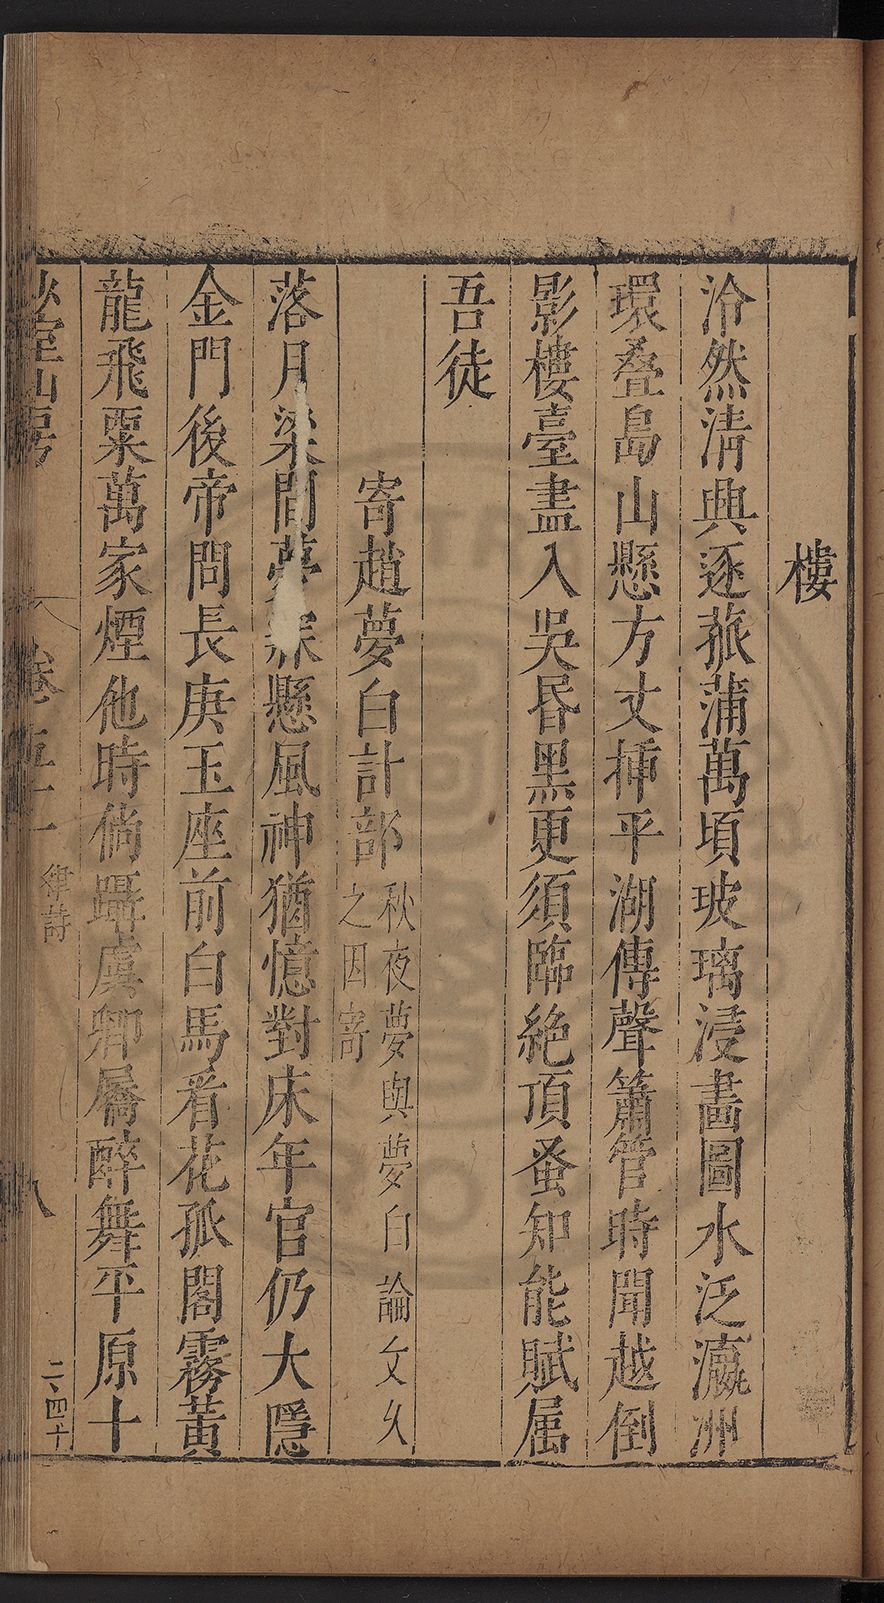 樓
泠然淸興逐菰蒲萬頃玻璃浸畵圖水泛瀛洲
環叠島山懸方丈揷平湖傳聲簫管時聞越倒
影樓臺盡入吳昏黑更須臨絶頂蚤知能賦屬
吾徒
寄趙夢白計部
秋夜夢與夢白論文久
之因寄
落月梁間夢 懸風神猶憶對床年官仍大隱
金門後帝問長庚玉座前白馬看花孤閣霧黃
龍飛粟萬家煙他時倘躡虞卿屩醉舞平原十
少室山房 卷五十 律詩 八
二、四十